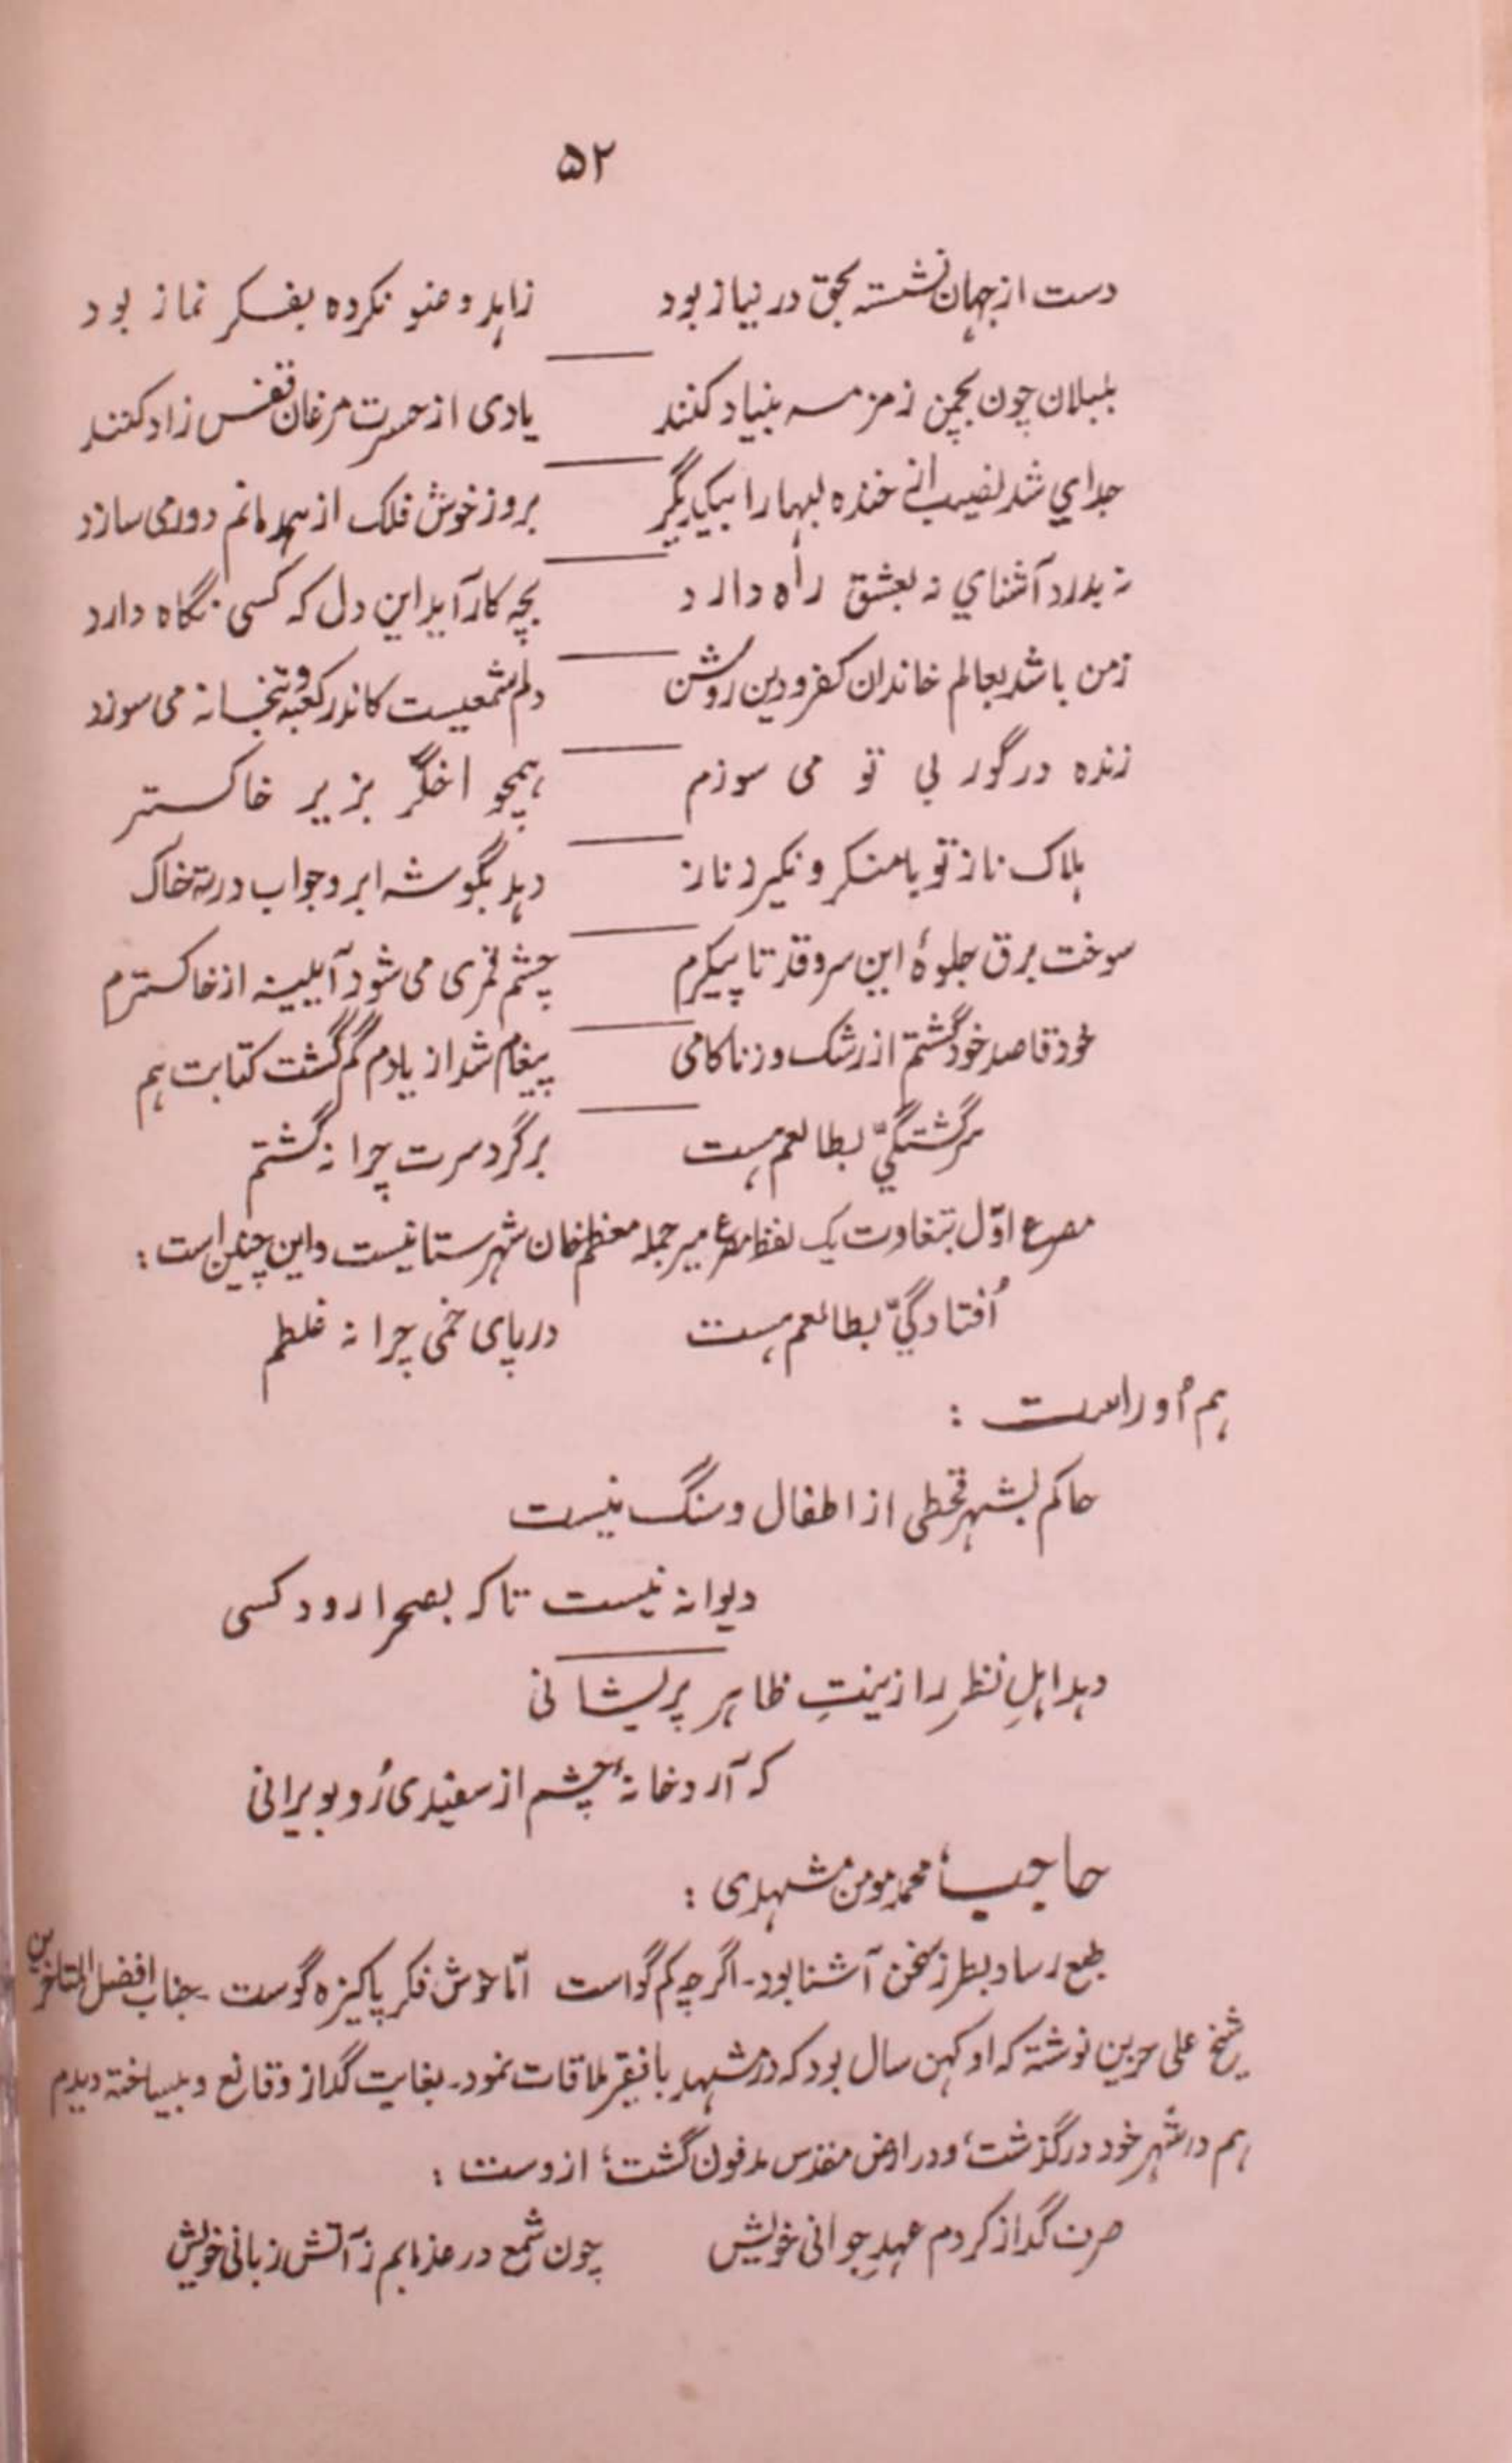 ۵۲
دست از جهان نشسته بحق در نیاز بود زاهد وضو نکرده بفکر نماز بود
بلبلان چون بچمن زمزمه بنیاد کنند یادی از حسرت مرغان قفس زاد کنند
جدایي شد نصیب از خنده لبها را بیکدیگر بروز خوش فلک از همدمانم دور می سازد
نه بدرد آشنایي نه بعشق راه دارد بچه کار آید این دل که کسی نگاه دارد
زمن باشد بعالم خاندان کفر و دین روشن دلم شمعیست کاندر کعبه و بتخانه می سوزد
زنده در گور بی تو می سوزم همچو اخگر بزیر خاکستر
هلاک ناز تو با منکر و نکیر ز ناز دهد بگوشه ابرو جواب در ته خاک
سوخت برق جلوهٔ این سرو قد تا پیکرم چشم قمری می شود آیینه از خاکسترم
خود قاصد خود گشتم از رشک و ز ناکامی پیغام شد از یادم گم گشت کتابت هم
سرگشتگيّ بطالعم هست برگرد سرت چرا نه گشتم
مصرع اوّل بتفاوت یک لفظ مصرع میر جمله معظم خان شهرستانیست و این چنین است :
اُفتادگيّ بطالعم هست در پای خمی چرا نه غلطم
هم اُوراست :
حاکم بشهر قحطی از اطفال و سنگ نیست
دیوانه نیست تا که بصحرا رود کسی
دهد اهلِ نظر را زینتِ ظاهر پریشانی
که آرد خانهٔ چشم از سفیدی رُو بویرانی
حاجب، محمد مومن مشهدی :
طبع رسا و بطرز سخن آشنا بود۔ اگرچه کم گو است امّا خوش فکر پاکیزه گوست ۔ جناب افضل المتاخرین
شیخ علی حزین نوشته که او کهن سال بود که در مشهد با فقیر ملاقات نمود۔ بغایت گداز و قانع و بیساخته دیدم
هم در شهر خود درگذشت، و در ارض مقدس مدفون گشت، ازوست :
صرف گداز کردم عهدِ جوانی خویش چون شمع در عذابم ز آتش زبانی خویش